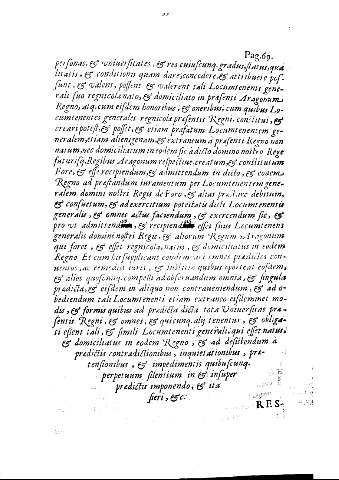 Pag.69.
personas, & vniuersitates, & res cuiuscunq. gradus, status, qua
litatis, & conditionis quam dare, concedere, & attribuere pos-
sunt, & valent, possent & valerent tali Locumtenenti gene-
rali suo regnicola nato, & domiciliato in præsenti Aragonum
Regno, atq. cum eisdem honoribus, & oneribus, cum quibus Lo-
cumtenentes generales regnicolæ præsentis Regni, constitui, &
creari potest, & possit, & etiam præfatum Locumtenentem ge-
neralem, etiam alienigenam, & extraneum à præsenti Regno non
natum, nec domiciliatum in eodem sic à dicto domino nostro Rege
futurisq. Regibus Aragonum respectiue creatum, & constitutum
Fore, & esse recipiendum, & admittendum in dicto, & eodem
Regno ad præstandum iuramentum per Locumtenentem gene-
ralem domini nostri Regis de Foro, & alias præstari debitum,
& consuetum, & ad exercitium potestatis dicti Locumtenentis
generalis, & omnes actus faciendum, & exercendum sic, &
pro vt admittendus, & recipiendus esset si suus Locumtenens
generalis domini nostri Regis, & aliorum Regum Aragonum
qui foret, & esset regnicola, natus, & domiciliatus in eodem
Regno Et cum his supplicant
& alios quoscunq. compelli ad obseruandum omnia, & singula
prædicta, & eisdem in aliquo non contraueniendum, & ad o-
bediendum tali Locumtenenti etiam extraneo eisdemmet mo-
dis, & formis quibus ad prædicta dicta tota Vniuersitas præ-
sentis Regni, & omnes, & quicunq. alij tenentur, & obliga-
ti essent tali, & simili Locumtenenti generali, qui esset natus,
& domiciliatus in eodem Regno, & ad desistendum à
prædictis contradictionibus, inquietationibus, præ-
tensionibus, & impedimentis quibuscunq.
perpetuum silentium in & insuper
prædictis imponendo, & ita
fieri, &c.
RES-